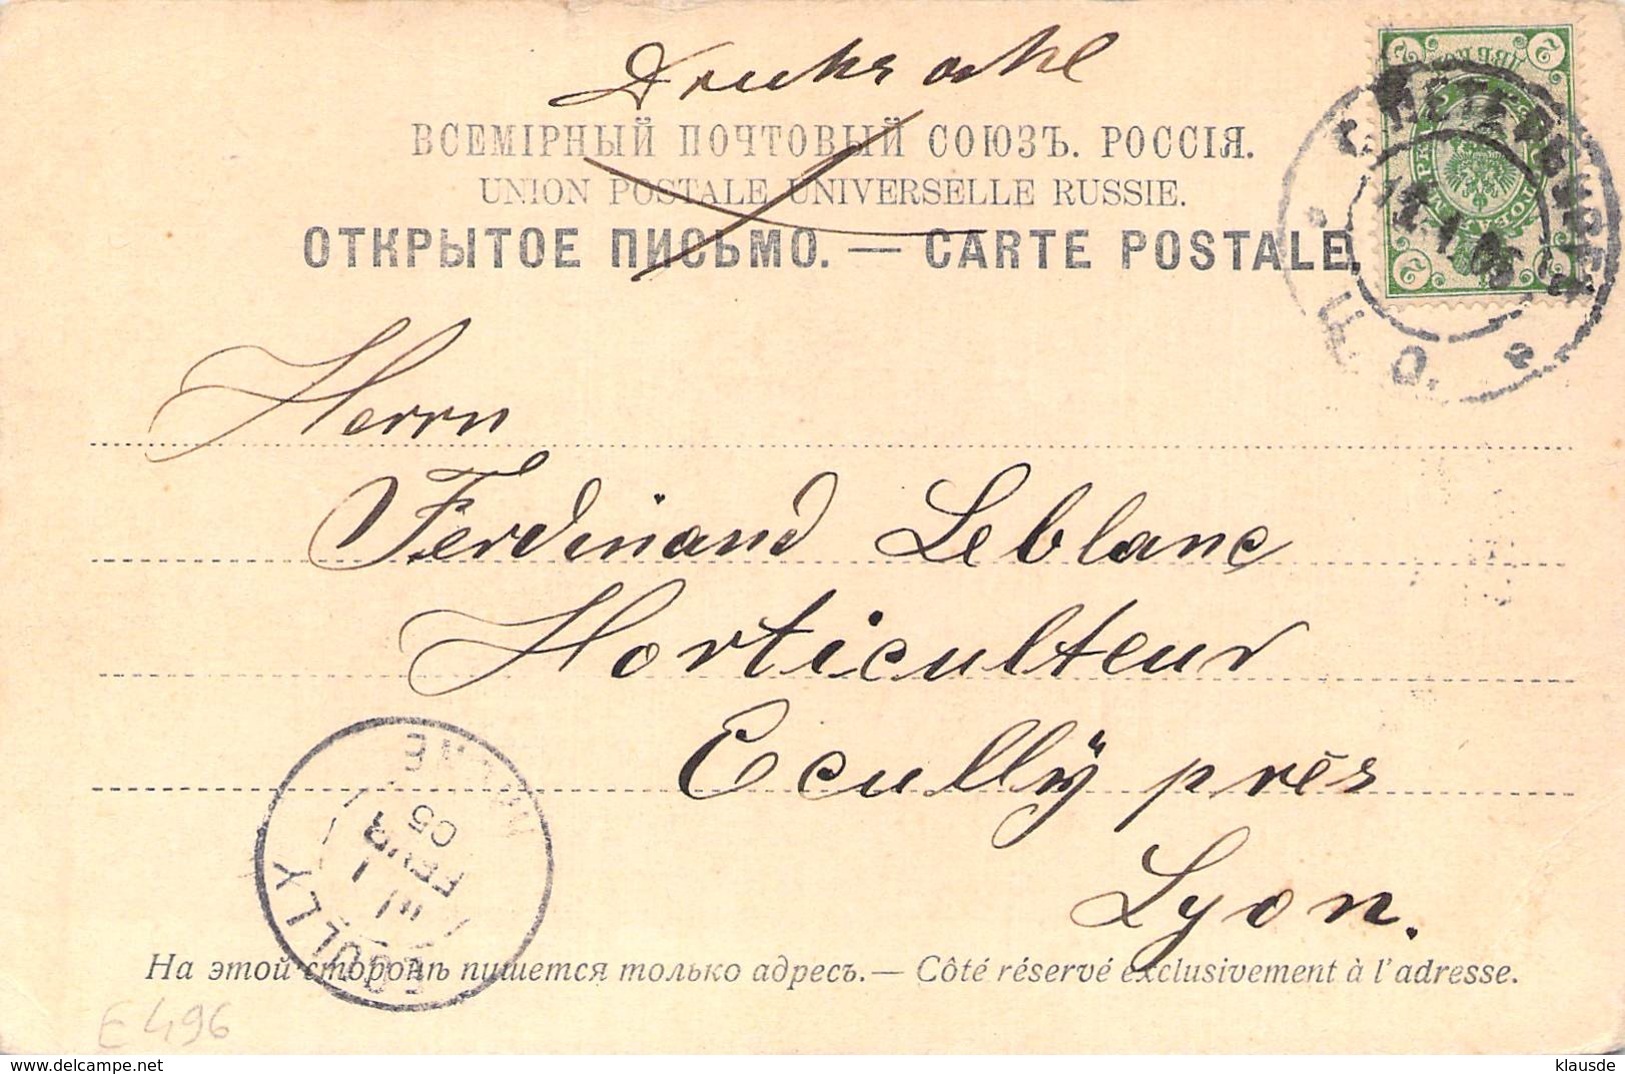 Drucksache
ВСЕМІРНЫЙ ПОЧТОВЫЙ СОЮЗЪ. РОССІЯ.
UNION POSTALE UNIVERSELLE RUSSIE.
ОТКРЫТОЕ ПИСЬМО. — CARTE POSTALE.
С. ПЕТЕРБУРГЪ
Herrn
Ferdinand Leblanc
Horticulteur
Ecully près
Lyon.
ECULLY
FEVR
05
На этой сторонѣ пишется только адресъ. — Côté réservé exclusivement à l'adresse.
E 496
delcampe.net
klausde